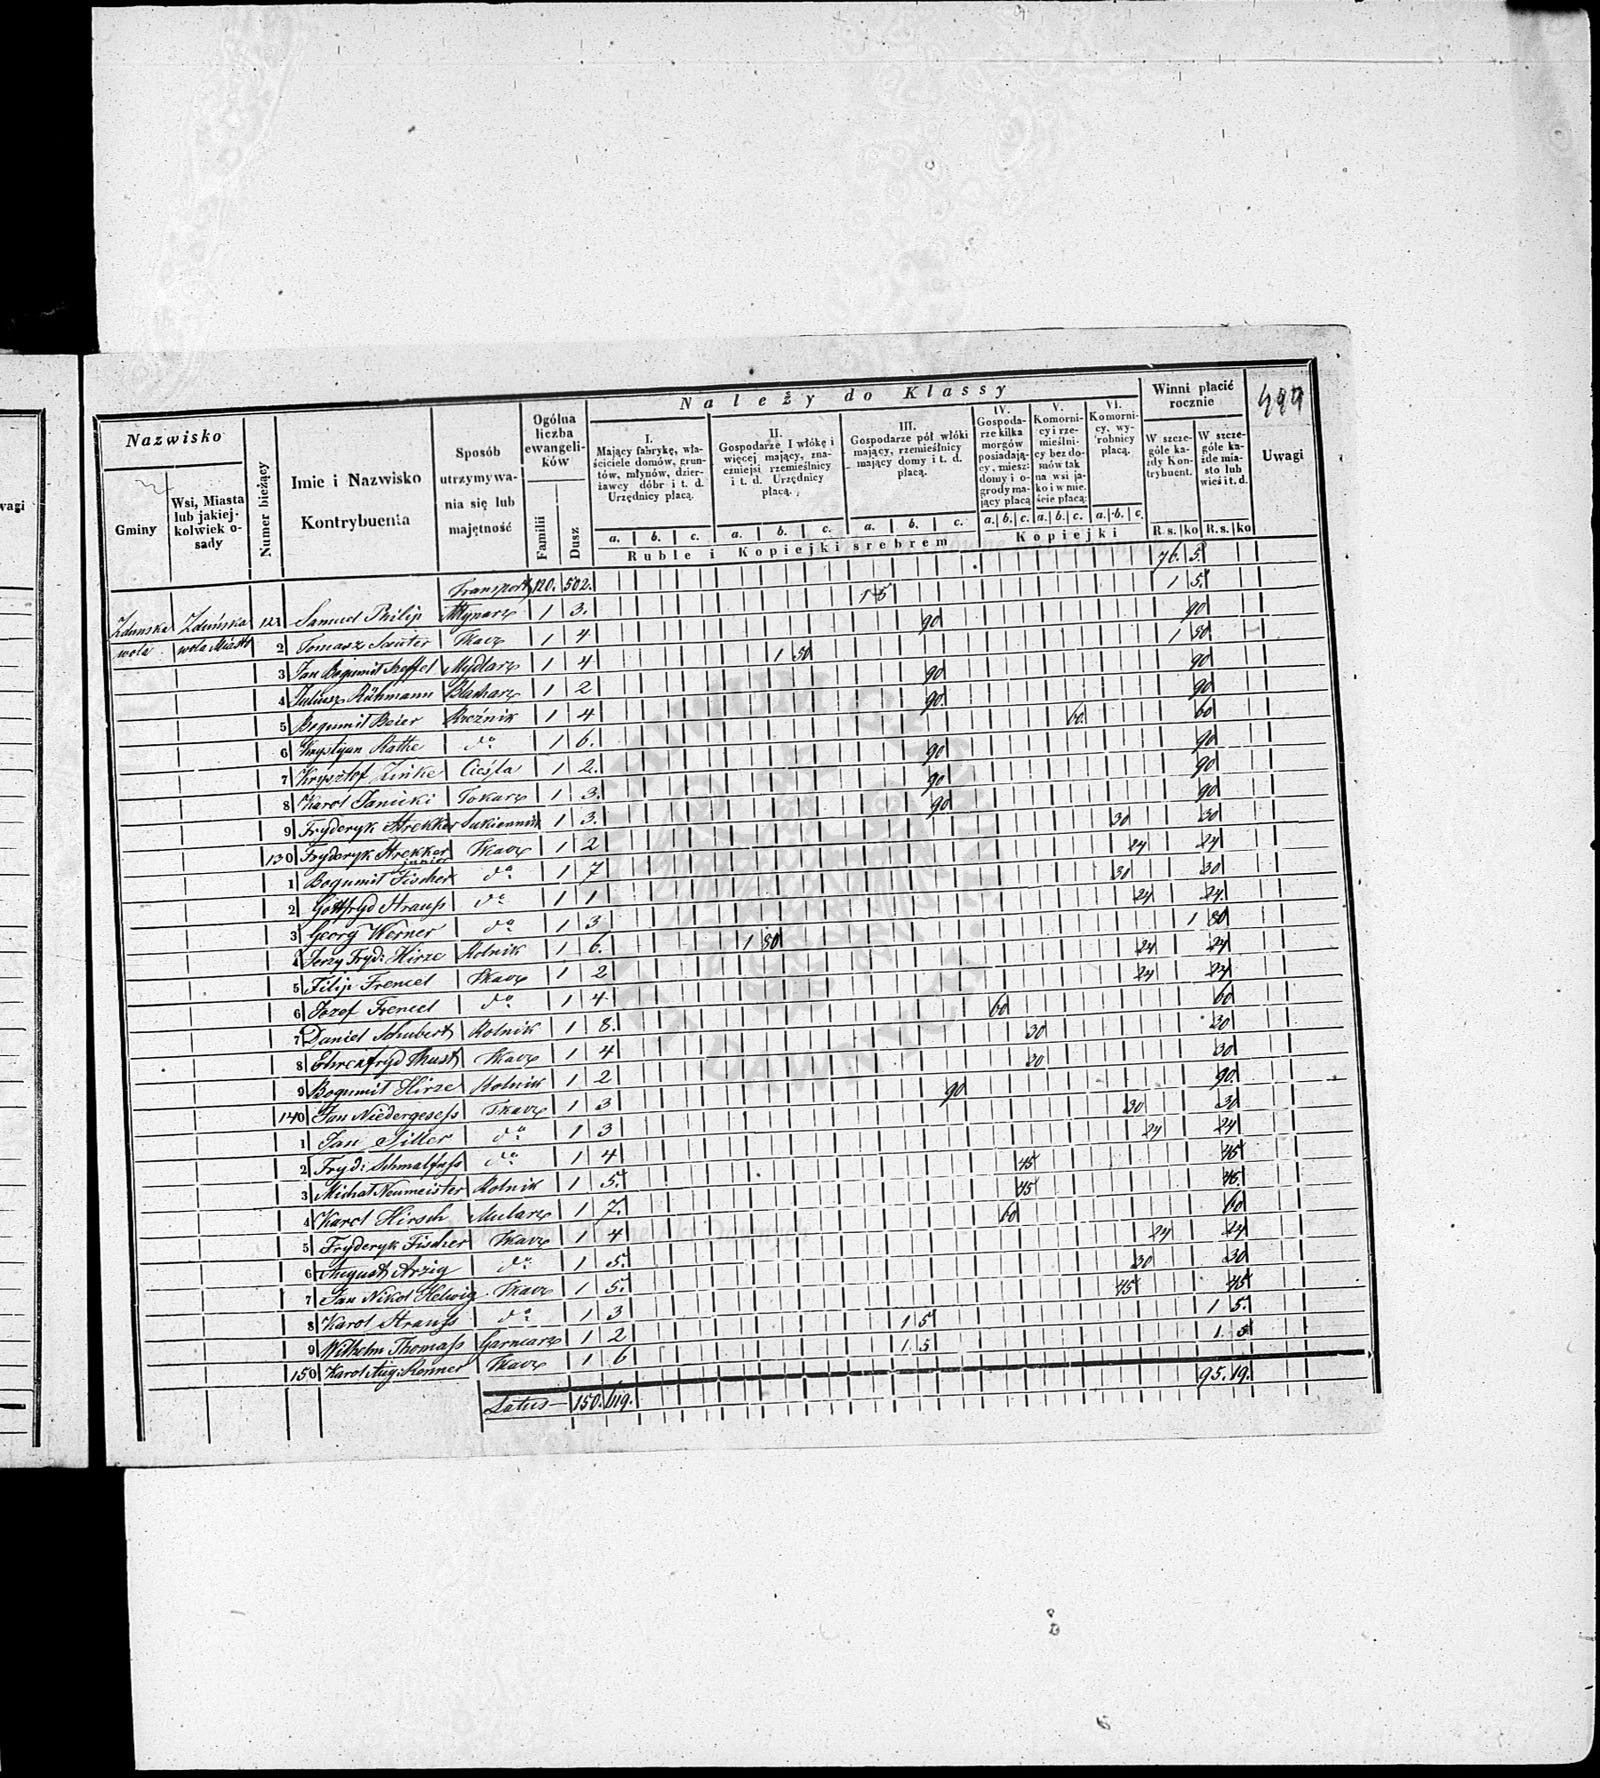 Należy do Klassy
499
Nazwisko
Gminy
Wsi, Miasta lub jakiej-kolwiek o-sady
Numer bieżący
Imie i Nazwisko Kontrybuenta
Sposób utrzymywa-nia się lub majętność
Ogólna liczba ewangeli-ków
Familii
Dusz
I. Mający fabrykę, wła-ściciele domów, grun-tów, młynów, dzier-żawcy dóbr i t. d. Urzędnicy płacą.
II. Gospodarze I włókę i więcej mający, zna-czniejsi rzemieślnicy i t. d. Urzędnicy płacą.
III. Gospodarze pół włóki mający, rzemieślnicy mający domy i t. d. płacą.
IV. Gospoda-rze kilka morgów posiadają-cy, miesz: domy i o-grody ma-jący płacą
V. Komorni-cy i rze-mieślni-cy bez do-mów tak na wsi ja-ko i w mie-ście płacą:
VI. Komorni-cy, wy-robnicy płacą.
Winni płacić rocznie
W szcze-góle ka-żdy Kon-trybuent.
W szcze-góle ka-żde mia-sto lub wieś i t. d.
Uwagi
a. b. c. a. b. c. a. b. c. a. b. c. a. b. c. a. b. c. R.s. ko R.s. ko
Ruble i Kopiejki srebrem Kopiejki
Transport 120. 502. 76. 5.
Zduńska wola Zduńska wola Miasto 121 Samuel Philip Młynarz 1 3. 1 5 1 5.
2 Tomasz Sauter Tkacz 1 4 90 90
3 Jan Bogumił Seffel Mydlarz 1 4 1 50 1 50
4 Juliusz Rühmann Blacharz 1 2 90 90
5 Bogumił Beier Rzeźnik 1 4 90. 90
6 Krystjan Rathe do 1 6. 60. 60
7 Krysztof Zinke Cieśla 1 2. 90 90
8 Karol Janicki Tokarz 1 3. 90 90
9 Fryderyk Strekker Sukiennik 1 3. 90 90
130 Fryderyk Strekker junior Tkacz 1 2 30 30
1 Bogumił Fischer do 1 7 24 24
2 Gottfryd Strauss do 1 1 30 30
3 Georg Werner do 1 3 24 24.
4 Jerzy Fryd: Hirze Rolnik 1 6. 1 80 1 80
5 Filip Frencel Tkacz 1 2 24 24
6 Jozef Frencel do 1 4 24 24
7 Daniel Schubert Rolnik 1 8. 60 60
8 Ehrenfryd Thust Tkacz 1 4 30 30
9 Bogumił Hirze Rolnik 1 2 30 30
140 Jan Niedergesess Tkacz 1 3 90 90.
1 Jan Tiller do 1 3 30 30
2 Fryd: Schmalfuss do 1 4 24 24
3 Michał Neumeister Rolnik 1 5. 45 45
4 Karol Hirsch Mularz 1 7. 45 45.
5 Fryderyk Fischer Tkacz 1 4 60 60
6 August Arzig do 1 5. 24 24
7 Jan Nikol Helwig Tkacz 1 5. 30 30
8 Karol Strauss do 1 3 45 45
9 Wilhelm Thomass Garncarz 1 2 1 5 1 5.
150 Karol Aug: Renner Tkacz 1 6 1 5 1. 5
Latus 150. 619. 95. 19.